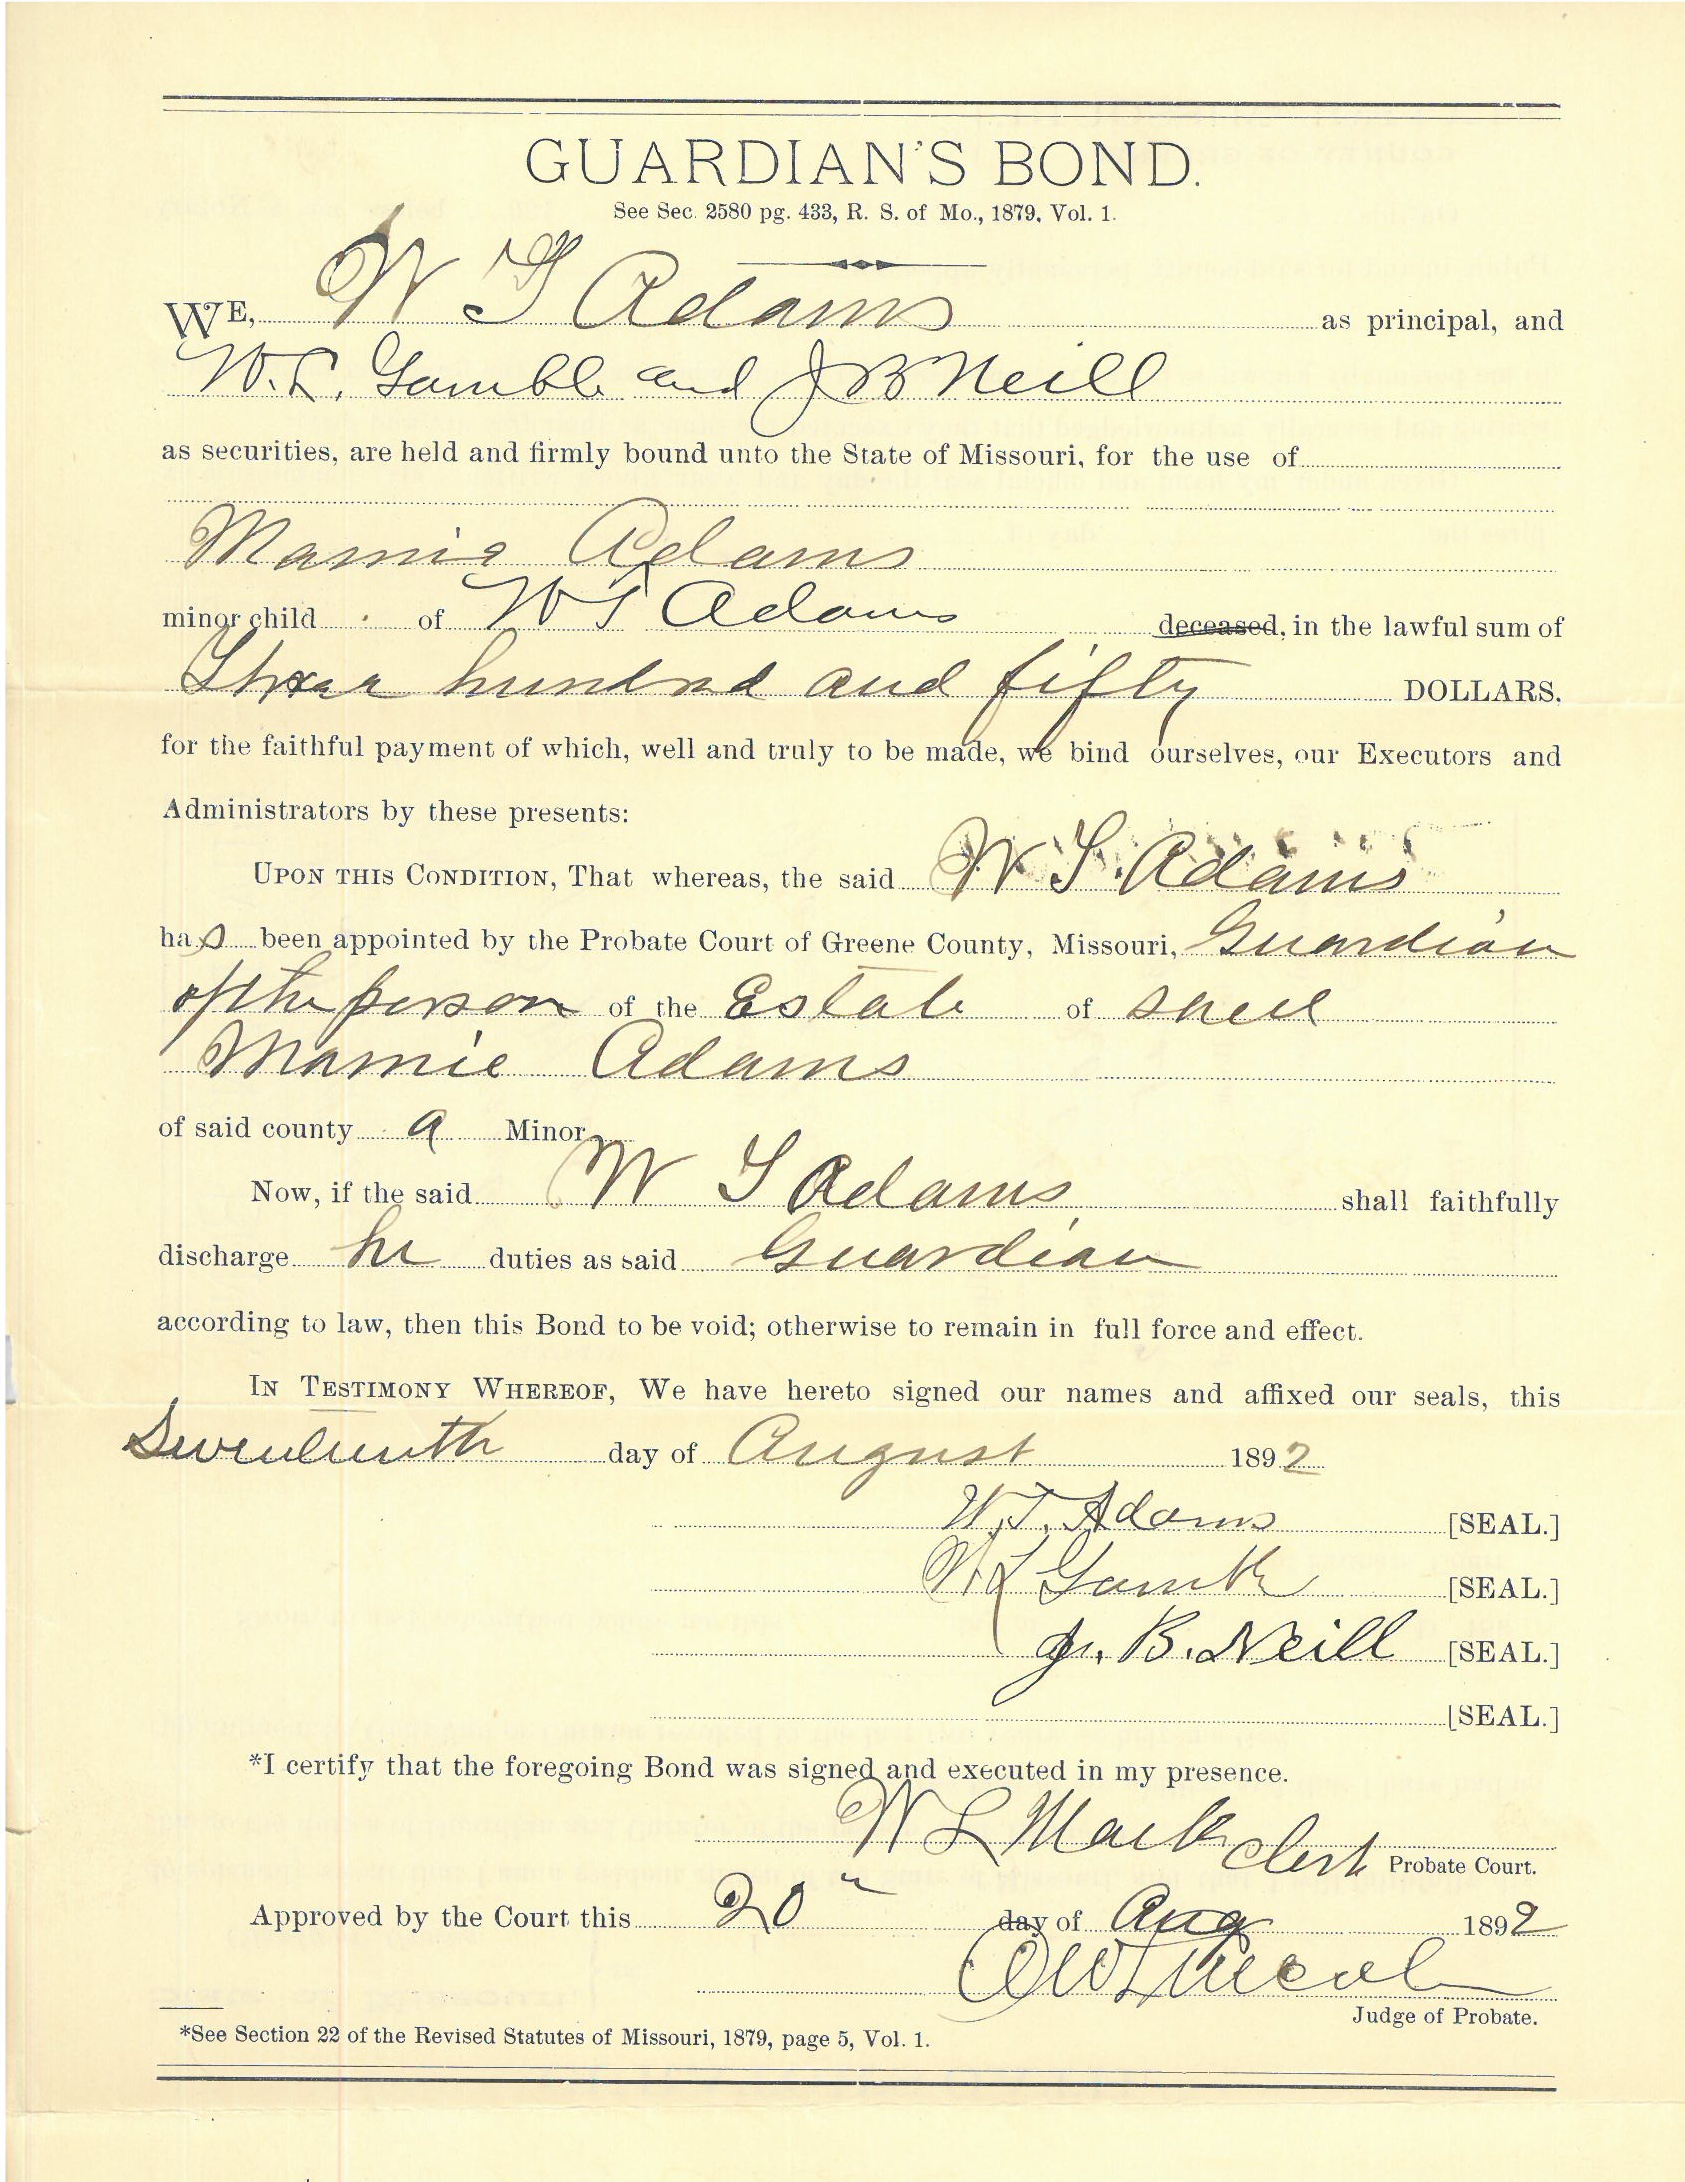 GUARDIAN'S BOND.
See Sec. 2580 pg. 433, R. S. of Mo., 1879, Vol. 1.
WE, W T Adams as principal, and
W. L. Gamble and J B Neill
as securities, are held and firmly bound unto the State of Missouri, for the use of
Mamie Adams
minor child of W T Adams deceased, in the lawful sum of
Three hundred and fifty DOLLARS.
for the faithful payment of which, well and truly to be made, we bind ourselves, our Executors and
Administrators by these presents:
UPON THIS CONDITION, That whereas, the said W T. Adams
has been appointed by the Probate Court of Greene County, Missouri, Guardian
of the person of the Estate of said
Mamie Adams
of said county a Minor
Now, if the said W T Adams shall faithfully
discharge his duties as said Guardian
according to law, then this Bond to be void; otherwise to remain in full force and effect.
IN TESTIMONY WHEREOF, We have hereto signed our names and affixed our seals, this
Seventeenth day of August 1892
W. T. Adams [SEAL.]
W. L Gamble [SEAL.]
B. Neill [SEAL.]
[SEAL.]
*I certify that the foregoing Bond was signed and executed in my presence.
W L Mack Clerk Probate Court.
Approved by the Court this 20" day of Aug 1892
Judge of Probate.
*See Section 22 of the Revised Statutes of Missouri, 1879, page 5, Vol. 1.